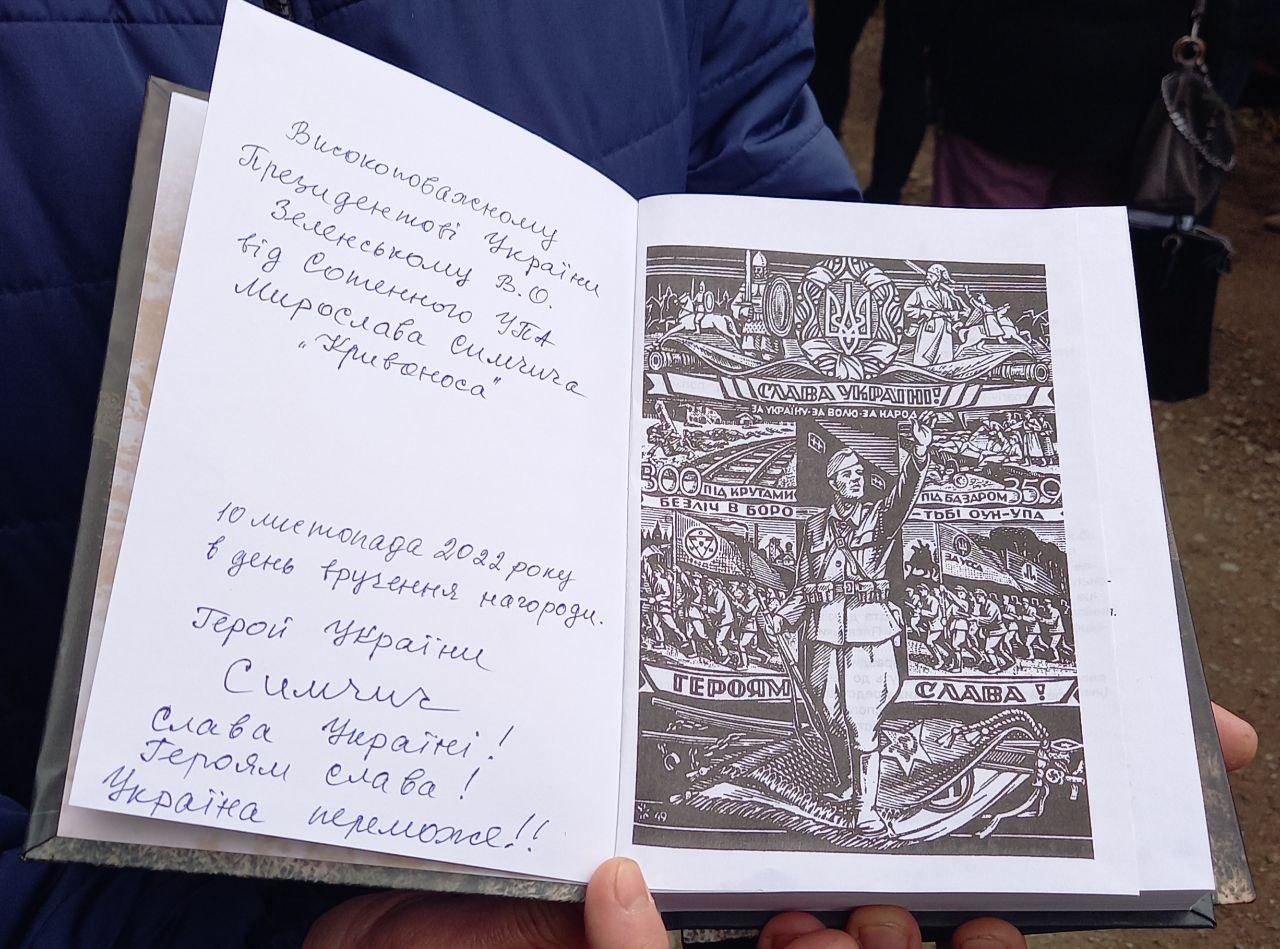 Високоповажному
Президентові України
Зеленському В.О.
від Сотенного УПА
Мирослава Симчича
"Кривоноса"
10 листопада 2022 року
в день вручення нагороди.
Герой України
Симчич
Слава Україні!
Героям слава!
Україна переможе!!
СЛАВА УКРАЇНІ!
ЗА УКРАЇНУ·ЗА ВОЛЮ·ЗА НАРОД
300 ПІД КРУТАМИ
ПІД БАЗАРОМ 359
БЕЗЛІЧ В БОРО
ТЬБІ ОУН-УПА
ГЕРОЯМ
СЛАВА!
49